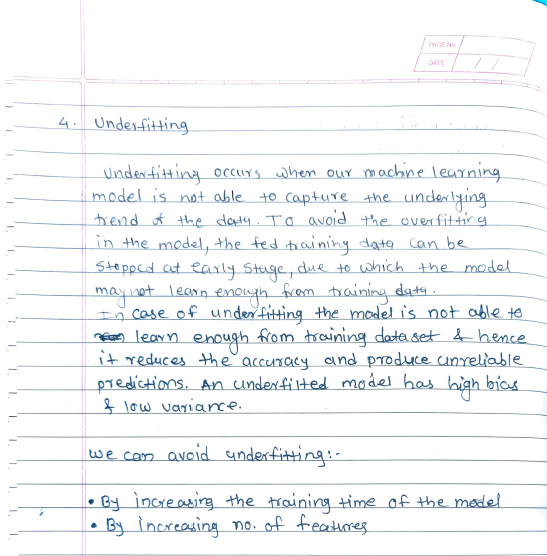 PAGE No.
DATE / /
4. Underfitting
Underfitting occurs when our machine learning
model is not able to capture the underlying
trend of the data. To avoid the overfitting
in the model, the fed training data can be
stopped at early stage, due to which the model
may not learn enough from training data.
In case of underfitting the model is not able to
learn enough from training dataset & hence
it reduces the accuracy and produce unreliable
predictions. An underfitted model has high bias
& low variance.
we can avoid underfitting:-
• By increasing the training time of the model
• By increasing no. of features